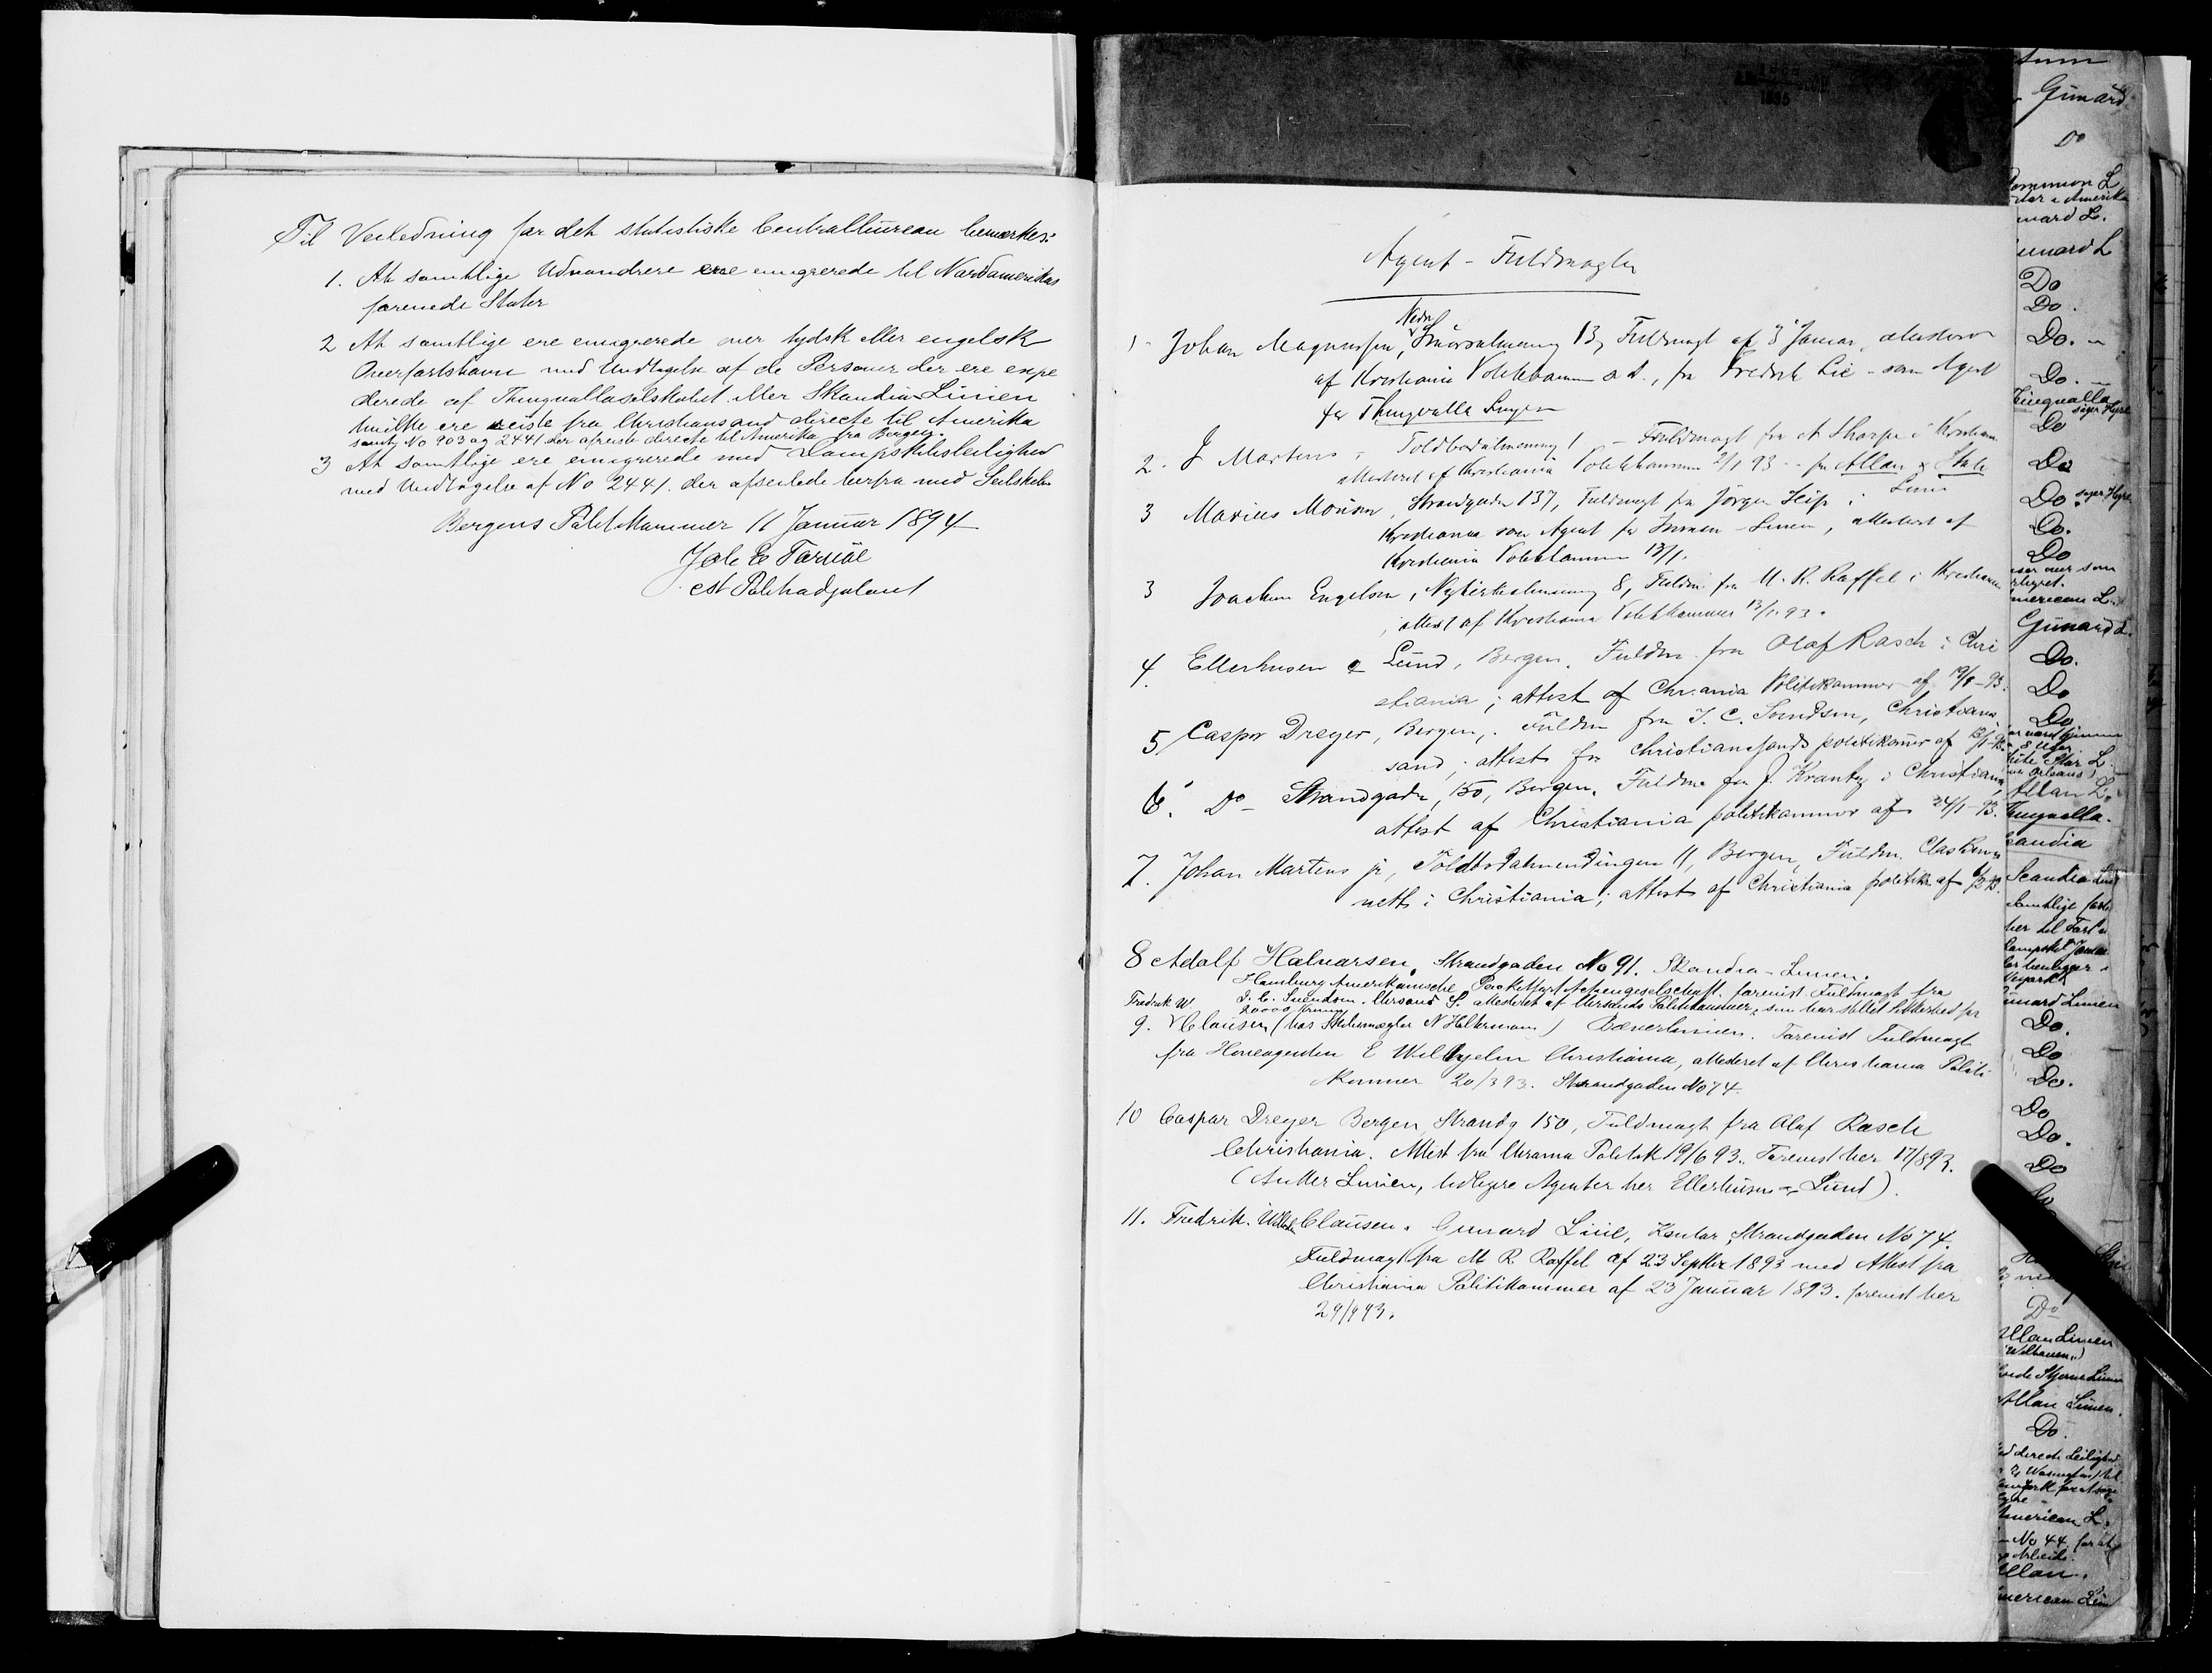 Til Veiledning for det statistiske Centralbureau bemærkes:
1. At samtlige Udvandrere ere emigrerede til Nordamerikas
forenede Stater
2 At samtlige ere emigrerede over tydsk eller engelsk
Overfartshavn med Undtagelse af de Personer der ere expe
derede af Thingvallaselskabet eller Skandia-Linien
hvilke ere reiste fra Christiansand directe til Amerika
samt No 903 og 2441 der afreiste directe til Amerika fra Bergen.
3 At samtlige ere emigrerede med Dampskibsleilighed
med Undtagelse af No 2441. der afseilede herfra med Seilskib
Bergens Politikammer 11 Januar 1894
Joh E
cst Politiadjutant
Agent - Fuldmagter
1. Johan Magnussen, Nedre Smörsalmening 13, Fuldmagt af 3 Januar, attesteret
af Kristiania Politikammer s. d., fra Fredrik Lie - som Agent
for Thingvalla Linjen
2. J Martens, Toldbodalmening 1 - Fuldmagt fra A Sharpe i Kristiania
attesteret af Kristiania Politikammer 2/1 93 - for Allan & State
Linie
3 Marius Monsen, Strandgaden 137, Fuldmagt fra Jörgen Seip i
Kristiania som Agent for Inman - Linien, attesteret af
Kristiania Politikammer 13/1.
3 Joachim Engelsen, Nykirkealmening 8, Fuldm. fra M. R. Raffel i Kristiania
, attest af Kristiania Politikammer 13/1. 93.
4. Ellerhusen & Lund, Bergen. Fuldm. fra Olaf Rasch i Chri
stiania; attest af Chr.ania Politikammer af 19/1-93.
5 Caspar Dreyer, Bergen, Fuldm fra J. C. Svendsen, Christians
sand; attest fra Christianssands politikammer af 13/1-93.
6. Do Strandgade, 150, Bergen. Fuldm. fra J. Kranby i Christiania
attest af Christiania politikammer af 24/1-93.
7. Johan Martens jr, Toldbodalmendingen 11, Bergen, Fuldm. Clas Ben
nett i Christiania; attest af Christiania politik. af
8 Adolf Halvarsen, Strandgaden No 91. Skandia-Linien.
Hamburg Amerikanische Packetfart Actiengeselschaft, forevist Fuldmagt fra
J. C. Svendsen. Chrsand S. attesteret af Chrsands Politikammer, som har stillet Sikkerhed for
20000 Kroner
Fredrik W
9. Clausen (hos Skibsmægler N Halkrmann) Bæverlinien. Forevist Fuldmagt
fra Hovedagenten E Wilhjelm Christiania, attesteret af Christiania Politi
kammer 20/3 93. Strandgaden No 74.
10 Caspar Dreyer Bergen Strandg 150, Fuldmagt fra Olaf Rasch
Christiania. Attest fra Chrania Politik 19/6 93. Forevist her 17/8 93.
(Anker Linien, tidligere Agenter her Ellerhusen & Lund).
11. Fredrik Wilhelm Clausen. Gunard Linie, Kontor Strandgaden No 74.
Fuldmagt fra M R Raffel af 23 Septbr 1893 med Attest fra
Christiania Politikammer af 23 Januar 1893. forevist her
29/9 93.
Gunard
Do
Dominion L
Do
Do.
Do.
Do.
Thingvalla
søger Hyre
Do
Do
Do søger Hyre
Do.
Do
American L.
Gunard L.
Do.
Do
Do
Allan L.
Thingvalla.
Scandia
Scandia
Do.
Do
Do.
Do
Do.
Do
Do
Allan Linien
Allan Linien.
Do.
American L.
No 44.
Allan.
American Linie